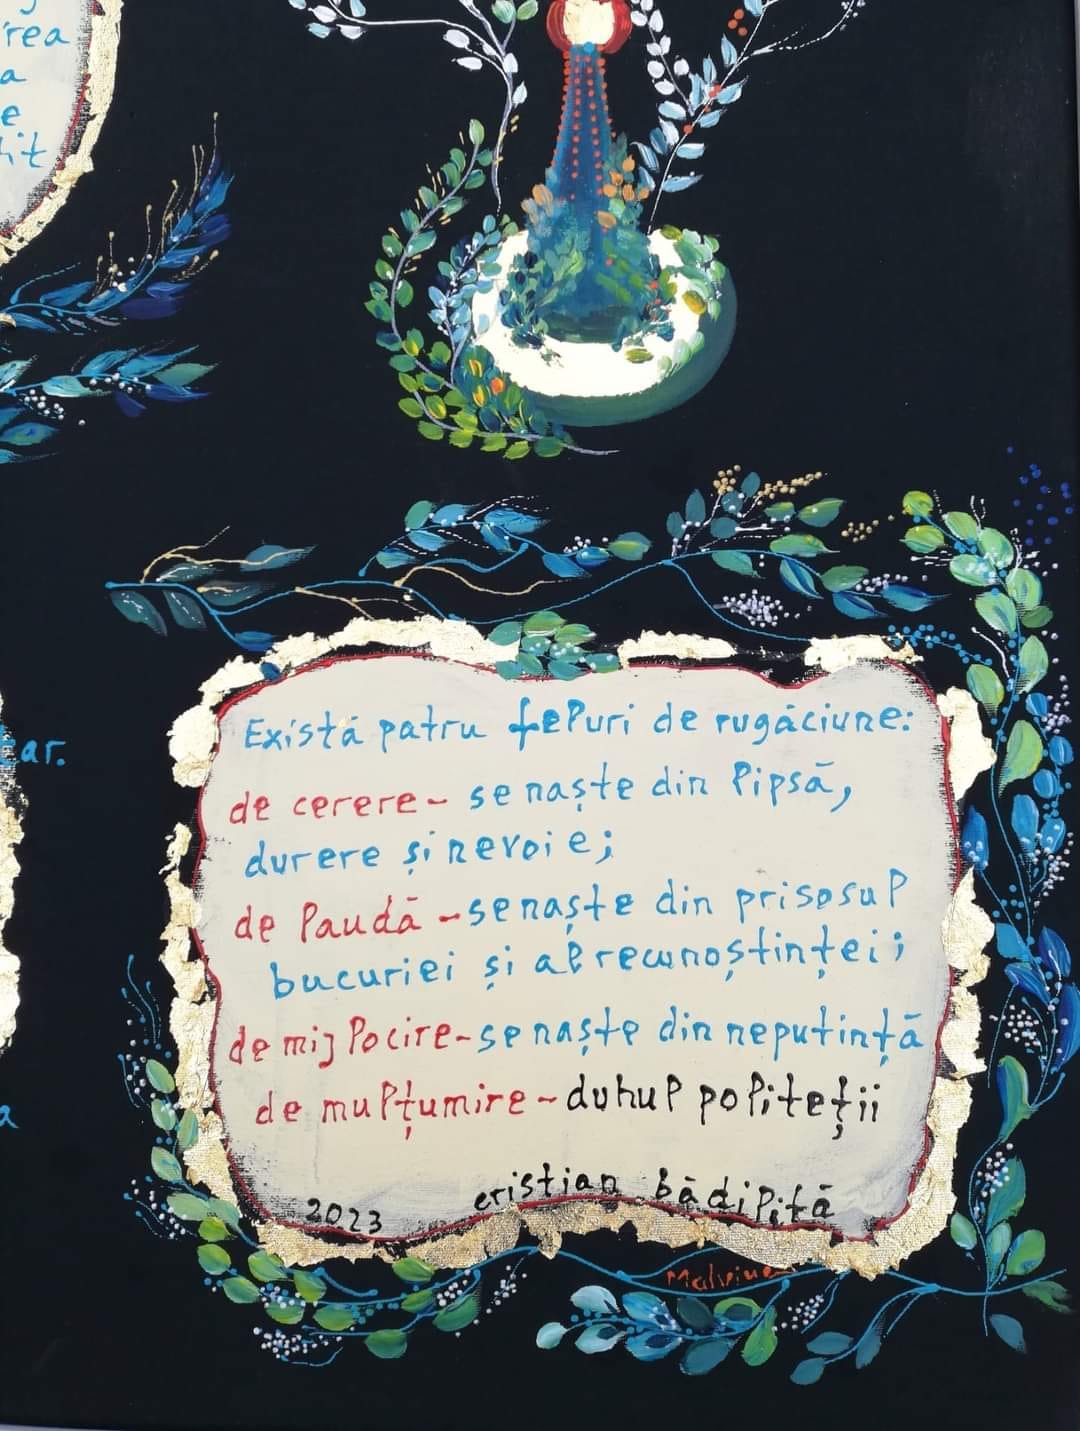 rea
a
e
tit
ar.
a
Există patru feluri de rugăciune:
de cerere - se naște din lipsă,
durere și nevoie;
de laudă - se naște din prisosul
bucuriei și al recunoștinței;
de mijlocire - se naște din neputință
de mulțumire - duhul politeții
2023 cristian bădiliță
Malvina